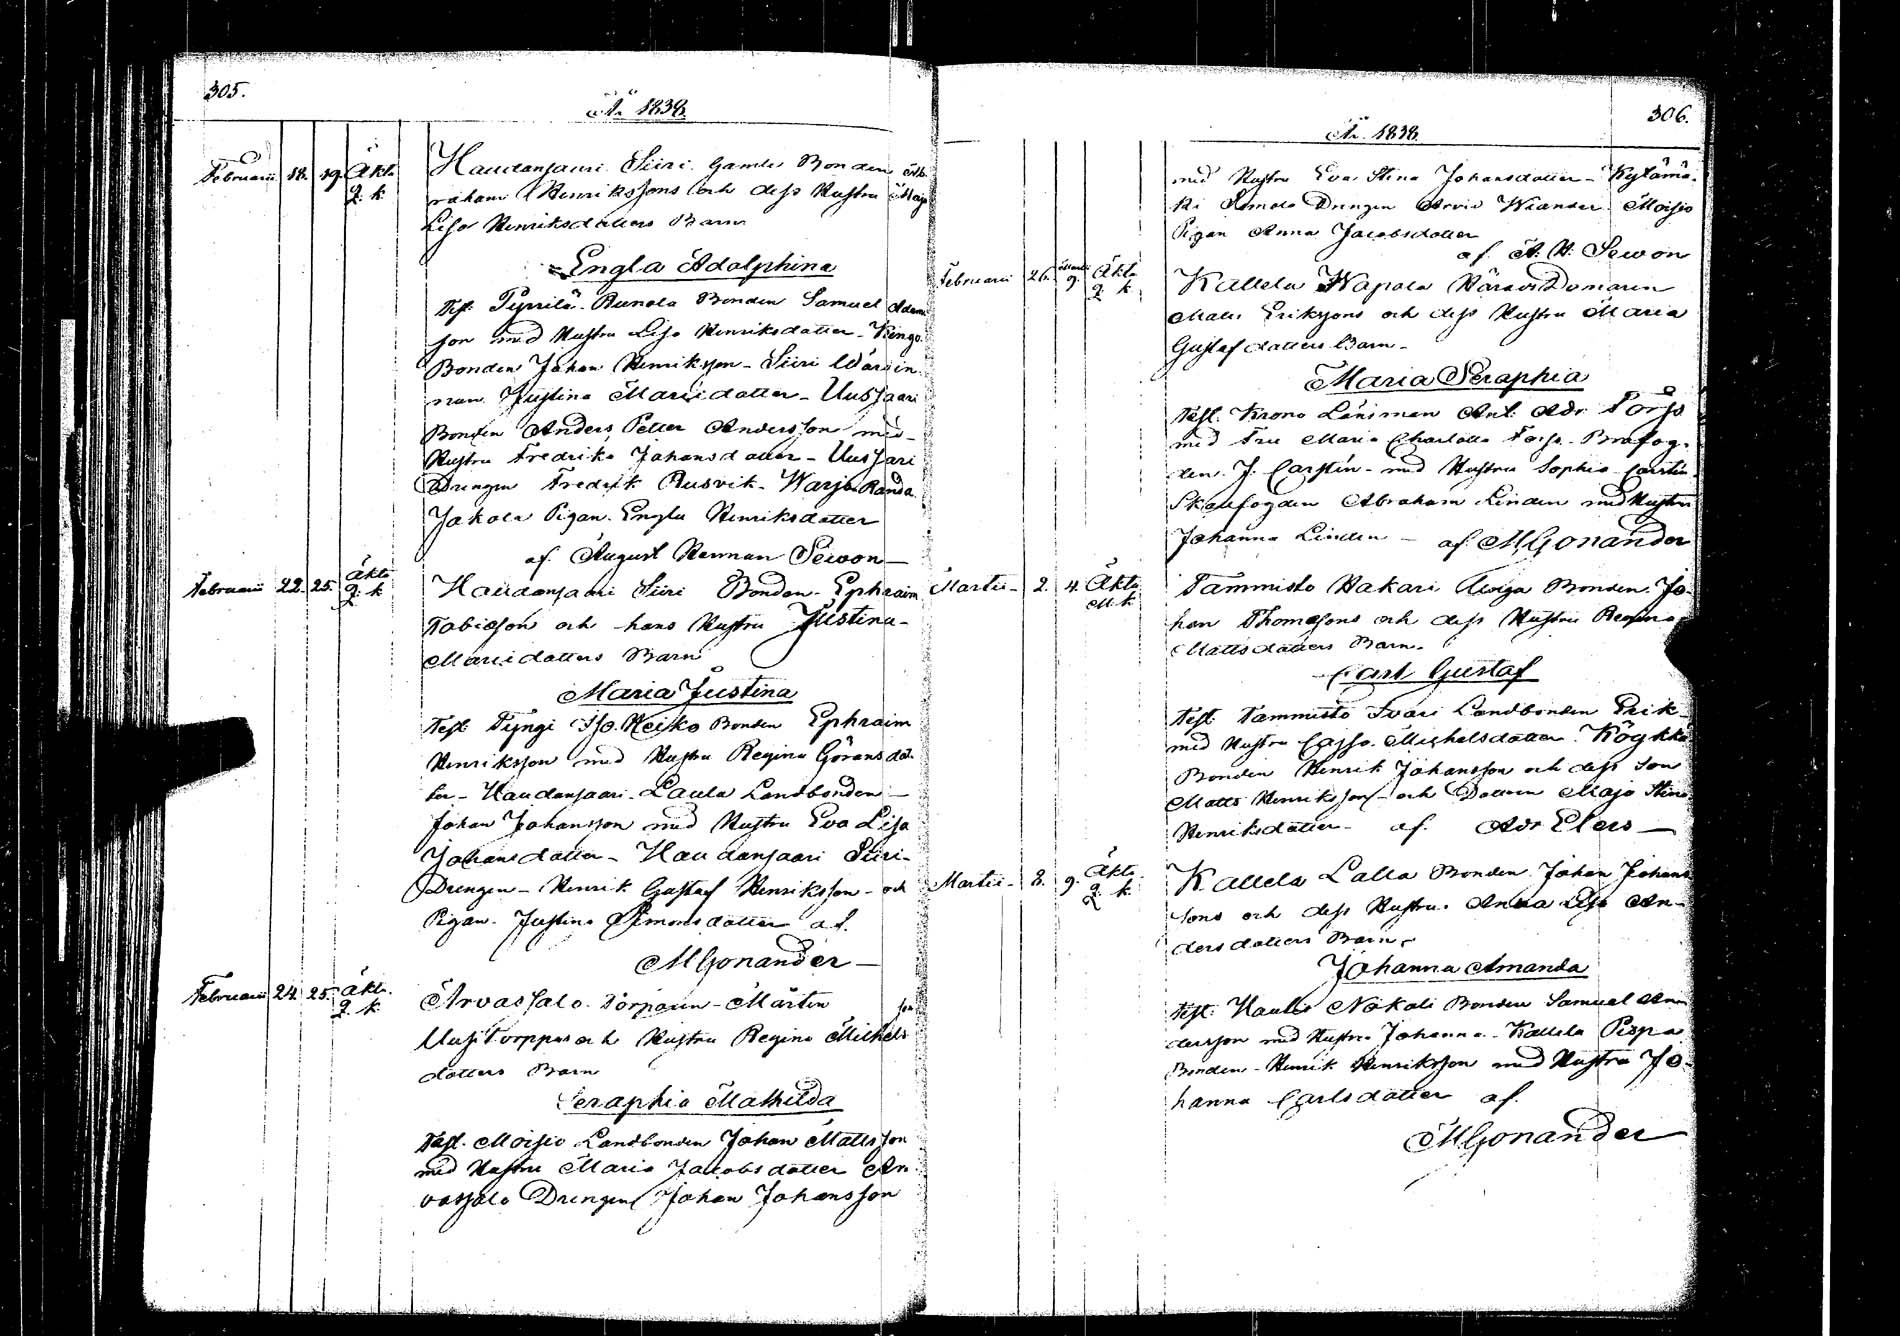 305.
År 1838.
Februarii 18. 19. Äkta Q. k. Haudanjaari Siiri Gamle Bonden Ab-
raham Henrikssons och dess Hustru Maja
Lisa Henriksdotters Barn
Engla Adolphina
Test: Pyrrilä Runola Bonden Samuel Adam
son med Hustru Lisa Henriksdotter - Kingo
Bonden Johan Henriksson - Siiri Wärdin
nan Justina Mariædotter - Uusjaari
Bonden Anders Petter Andersson med
Hustru Fredrika Johansdotter - Uusjari
Drengen Fredrik Rusvik - Warjo Randa
Jakola Pigan Engla Henriksdotter
af August Herman Sewon
Februarii 22. 25. Äkta Q. k. Haudanjaari Siiri Bonden Ephraim
Tobiæson och hans Hustru Justina
Mariædotters Barn
Maria Justina
Test: Tyngi Iso Heiko Bonden Ephraim
Henriksson med Hustru Regina Göransdot-
ter - Haudanjaari Laula Landbonden
Johan Johansson med Hustru Eva Lisa
Johansdotter - Haudanjaari Siiri
Drengen - Henrik Gustaf Henriksson - och
Pigan Justina Simonsdotter af.
M Gonander
Februarii 24. 25. Äkta Q. k. Arvassalo Torparen - Mårten son
Uusitorppas och Hustru Regina Michels
dotters Barn
Seraphia Mathilda
Test. Moisio Landbonden Johan Mattsson
med Hustru Maria Jacobsdotter Ar-
vassalo Drengen Johan Johansson
306.
År 1838.
med Hustru Eva Stina Johansdotter - Kylämä-
ki Simola Drengen Arvid Wiander Moisio
Pigan Anna Jacobsdotter
af A. H. Sewon
Februarii 26. Martii 9. Äkta Q. k. Kallela Wapala Häradsdomaren
Matts Erikssons och dess Hustru Maria
Gustafdotters Barn -
Maria Seraphia
Test. Krono Länsman Ant. Adr. Forss
med Fru Maria Charlotta Forss - Brofog-
den J. Carstin - med Hustru Sophia Carstin
Skallfogden Abraham Linden med Hustru
Johanna Linden - af M Gonander
Martii 2. 4. Äkta M. k. Tammisto Hakari Äviga Bonden Jo-
han Thomæsons och dess Hustru Regina
Mattsdotters Barn.
Carl Gustaf
Test. Tammisto Ivari Landbonden Erik
med Hustru Cajsa Michelsdotter Köykkä
Bonden Henrik Johansson och dess Son
Matts Henriksson - och Dottren Maja Stina
Henriksdotter - af. Adr Elers
Martii 8. 9. Äkta Q. k. Kallela Lalla Bonden Johan Johans
sons och dess Hustru Anna Lisa An-
dersdotters Barn.
Johanna Amanda
Test: Haulio Nokali Bonden Samuel An-
dersson med Hustru Johanna - Kallela Pispa
Bonden - Henrik Henriksson med Hustru Jo-
hanna Carlsdotter af.
M Gonander